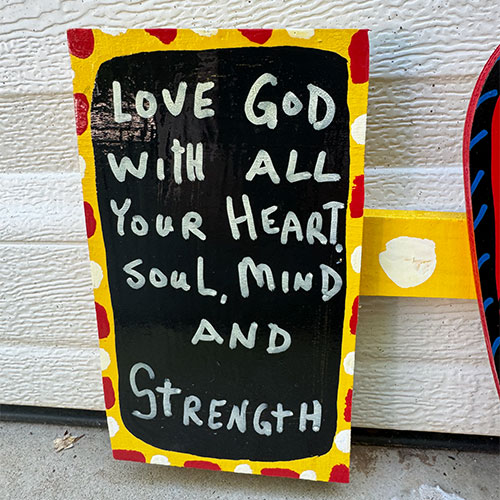 LOVE GOD
WITH ALL
YOUR HEART,
SOUL, MIND
AND
STRENGTH